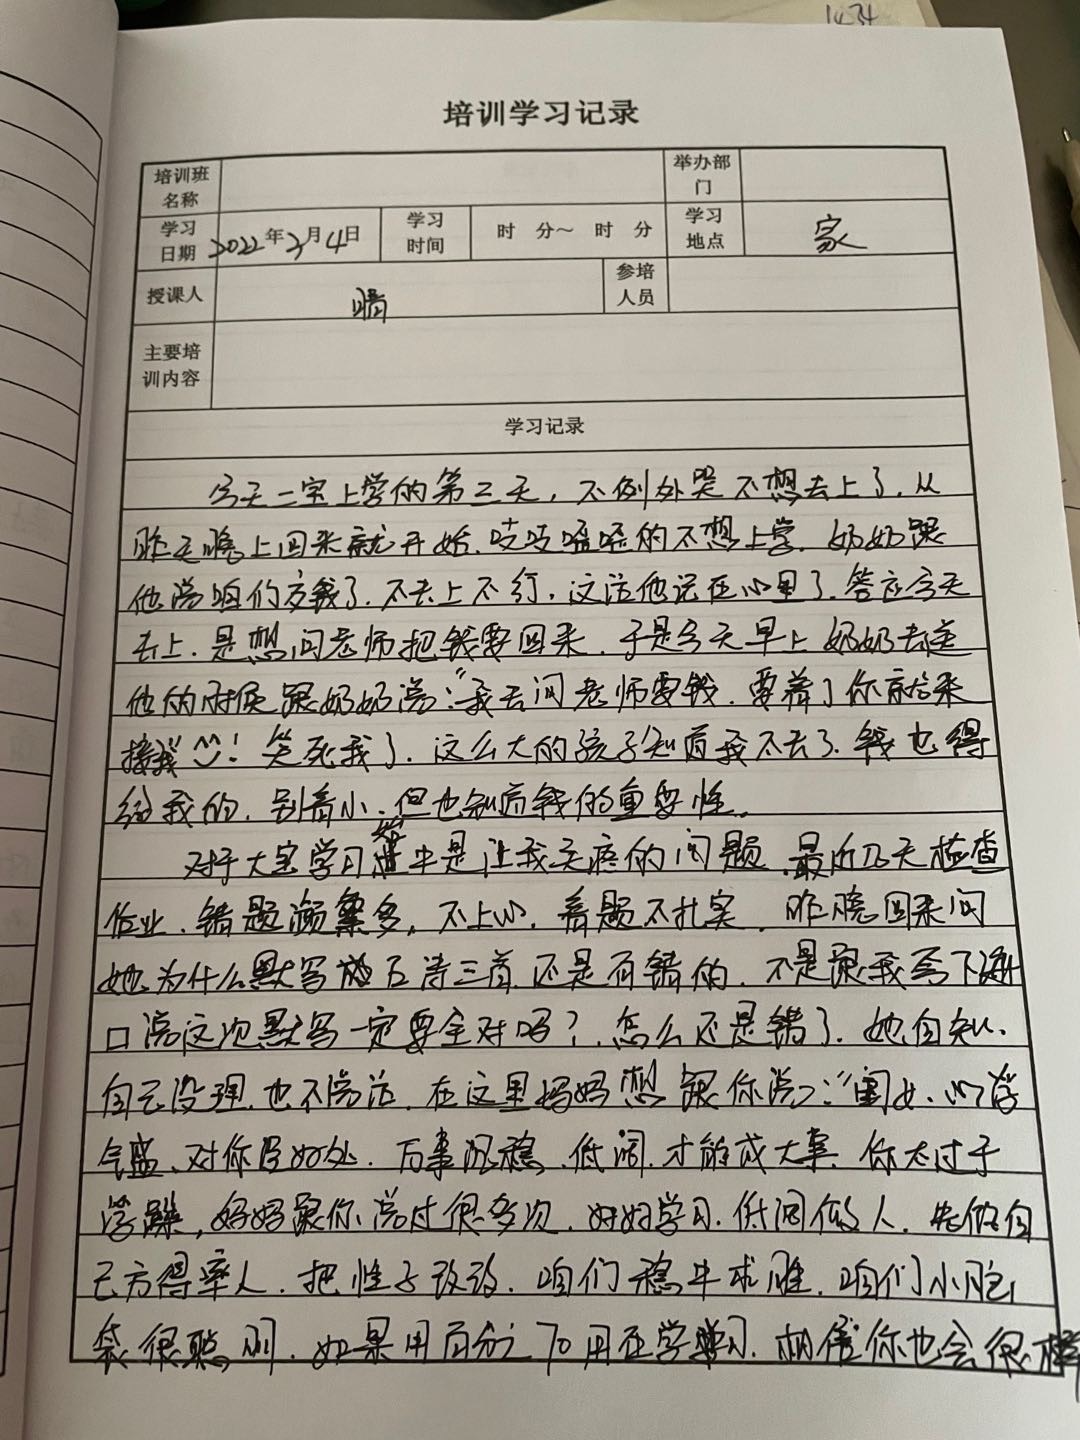 1434
培训学习记录
培训班名称
举办部门
学习日期 2022年3月4日 学习时间 时 分～ 时 分 学习地点 家
授课人 晴 参培人员
主要培训内容
学习记录
今天二宝上学的第三天，不例外哭不想去上了.从
昨天晚上回来就开始.吱吱嗯嗯的不想上学.奶奶跟
他说咱们交钱了.不去上不行，这话他记在心里了.答应今天
去上.是想问老师把钱要回来.于是今天早上奶奶去送
他的时候跟奶奶说:“我去问老师要钱.要着了你就来
接我！笑死我了.这么大的孩子知道我不去了.钱也得
给我的.别看小.但也知道钱的重要性。
对于大宝学习 是让我头疼的问题.最近几天检查
作业.错题频繁多。不上心.看题不扎实.昨晚回来问
她为什么默写 古诗三首.还是有错的.不是跟我写下
口说这次默写一定要全对吗？.怎么还是错了.她自知.
自己没理.也不说话.在这里妈妈想跟你说:“闺女.心浮
气盛、对你没好处.万事沉稳.低调.才能成大事.你太过于
浮躁，妈妈跟你说过很多次.好好学习.低调做人.先做自
己方得率人.把性子改改.咱们稳中求胜.咱们小脑
袋很聪明.如果用百分之70用在学习.相信你也会很棒